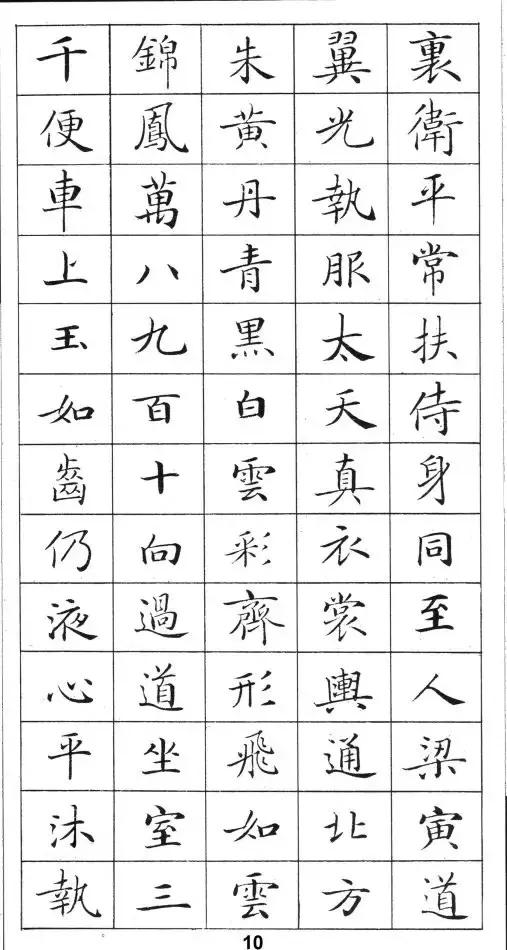 裏衛平常扶侍身同至人梁寅道
翼光執服太天真衣裳輿通北方
朱黄丹青黒白雲彩齊形飛如雲
錦鳳萬八九百十向過道坐室三
千便車上玉如齒仍液心平沐執
10